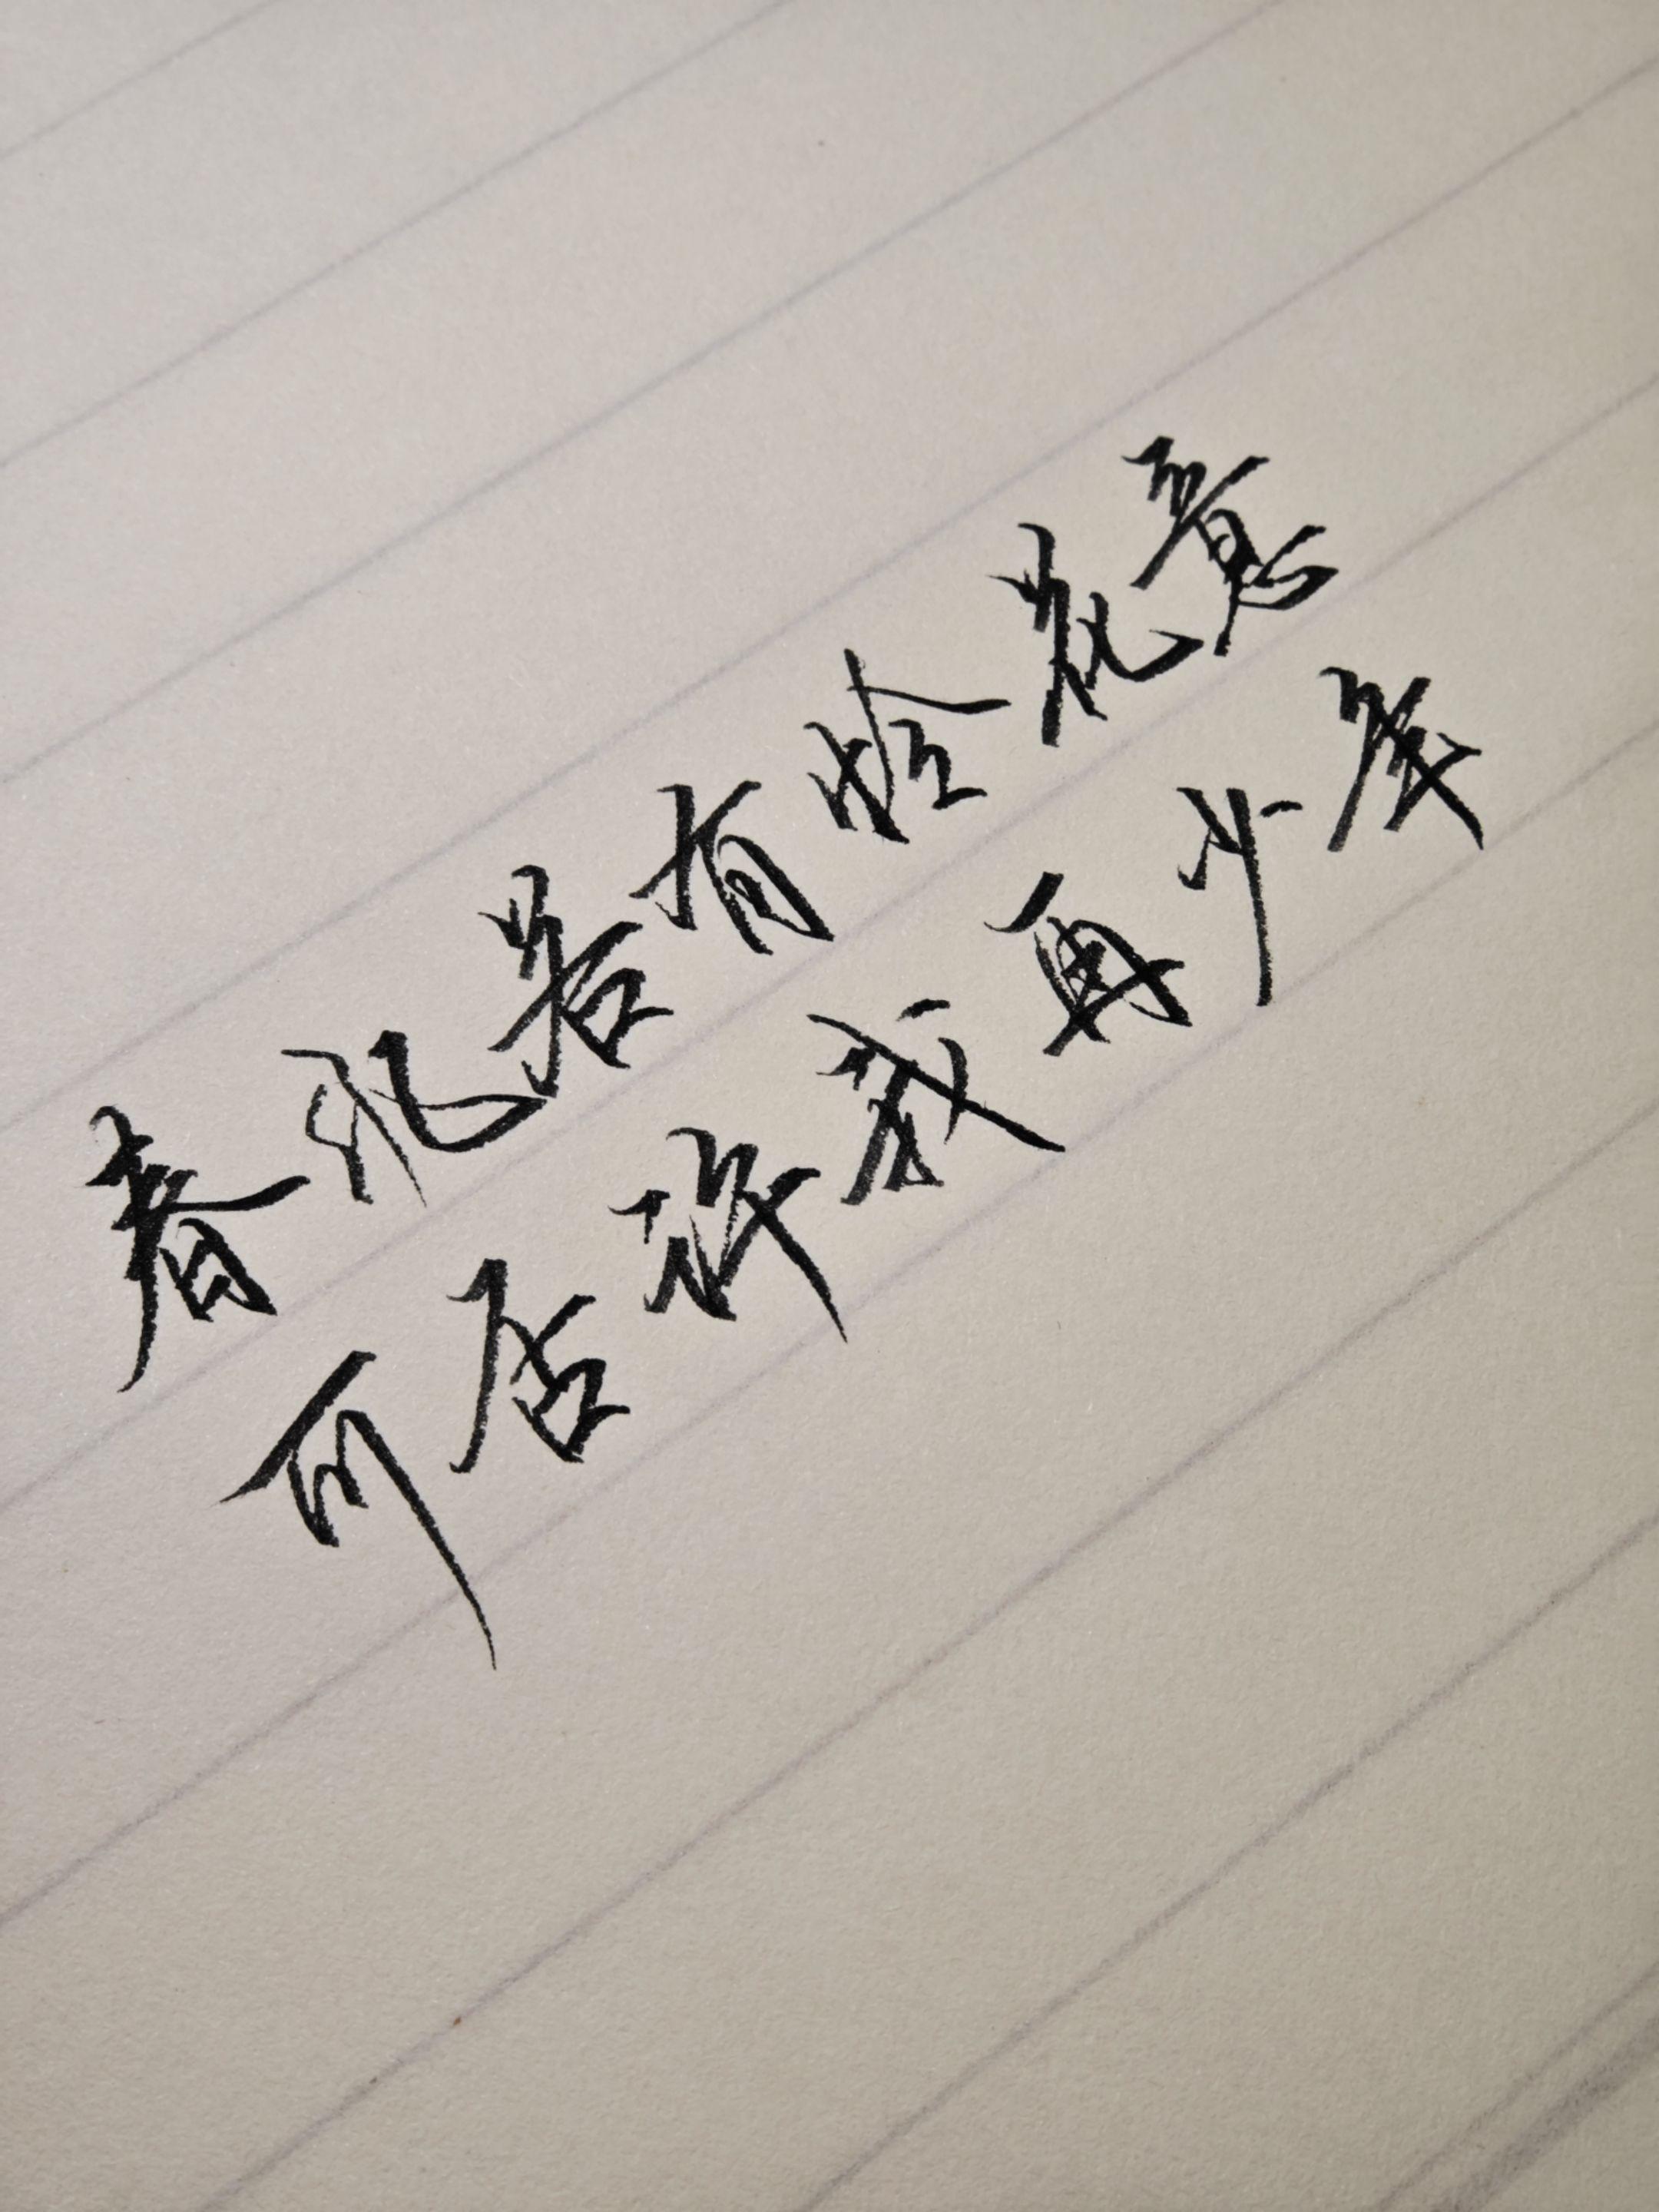 春风若有怜花意
可否许我再少年